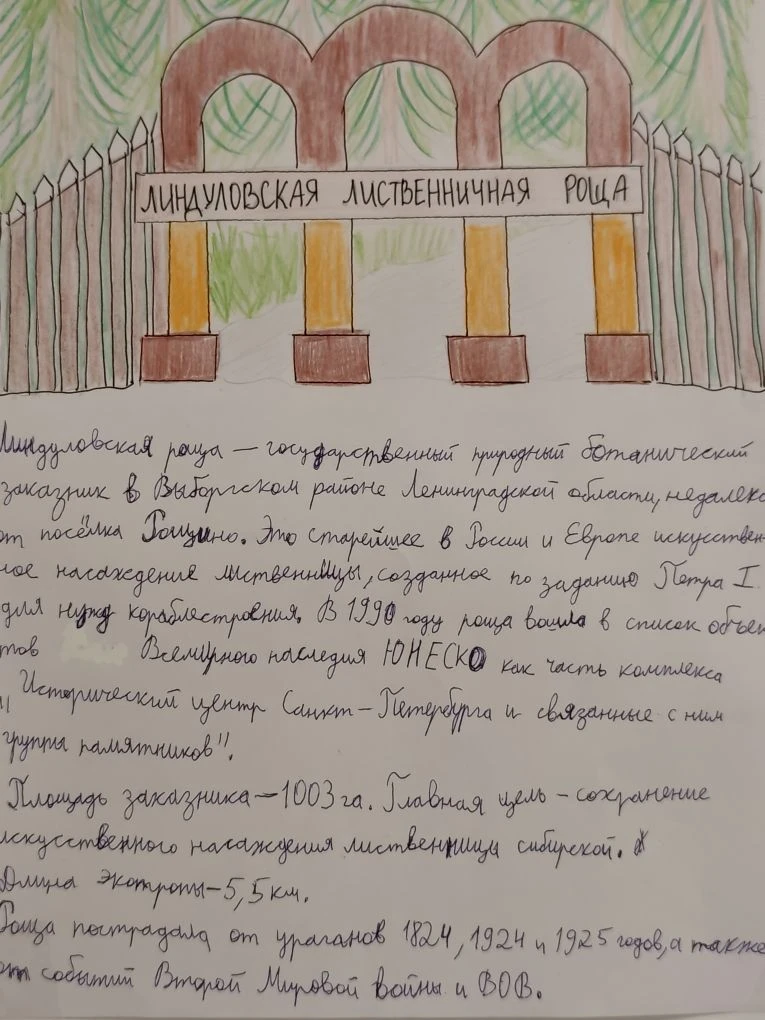 ЛИНДУЛОВСКАЯ ЛИСТВЕННИЧНАЯ РОЩА
Линдуловская роща — государственный природный ботанический
заказник в Выборгском районе Ленинградской области, недалеко
от посёлка Рощино. Это старейшее в России и Европе искусствен-
ное насаждение лиственницы, созданное по заданию Петра I
для нужд кораблестроения. В 1990 году роща вошла в список объек
тов Всемирного наследия ЮНЕСКО как часть комплекса
"Исторический центр Санкт-Петербурга и связанные с ним
группы памятников".
Площадь заказника — 1003 га. Главная цель - сохранение
искусственного насаждения лиственницы сибирской.
Длина экотропы - 5,5 км.
Роща пострадала от ураганов 1824, 1924 и 1925 годов, а также
от событий Второй Мировой войны и ВОВ.